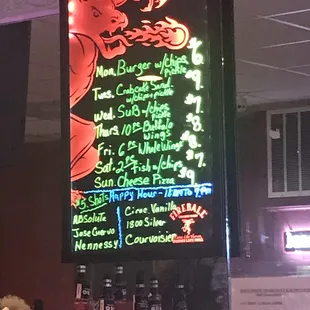 Mon. Burger w/chips pickle $6.
Tues. Crabcake Sand w/chips + pickle $9.
Wed. Sub w/chips pickle $7.
Thurs. 10pc Buffalo Wings $8.
Fri. 6pc Whole Wings $8.
Sat. 2pc Fish w/chips $7.
Sun. Cheese Pizza
$5. Shots Happy Hour
Absolute Ciroc Vanilla
Jose Cuervo 1800 Silver
Hennessy Courvoisier
FIREBALL